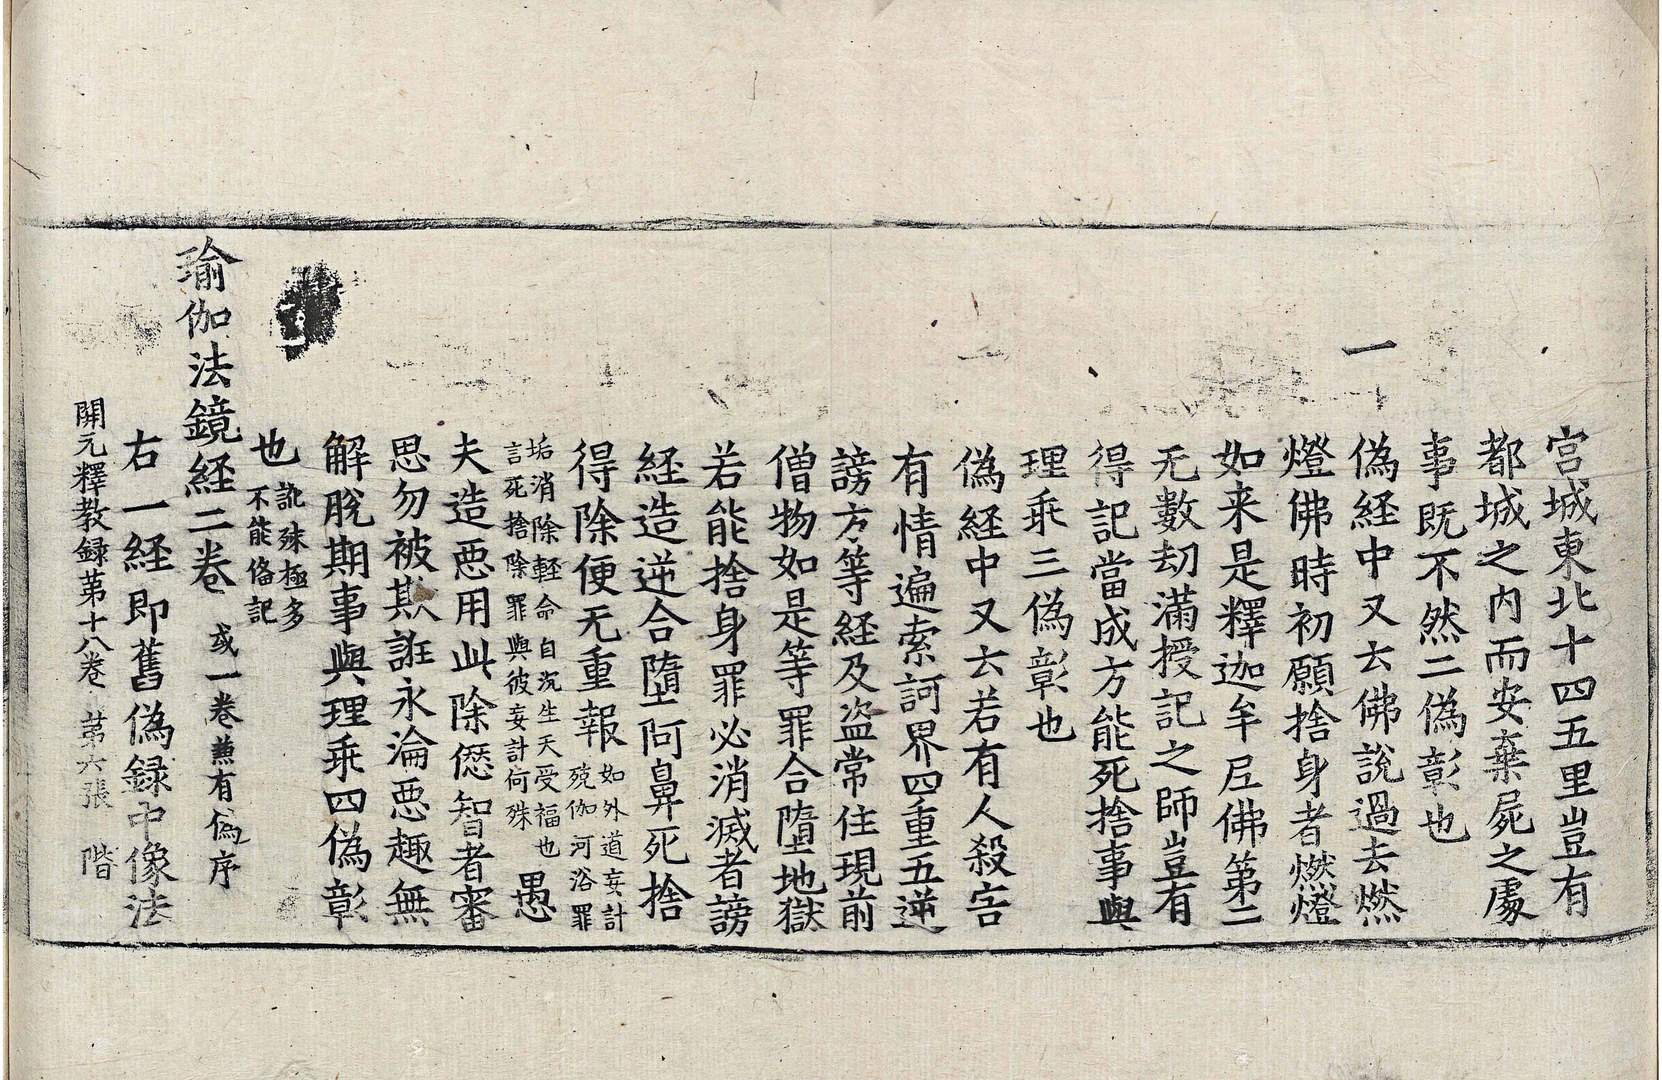 宮城東北十四五里豈有
都城之内而安棄屍之處
事既不然二偽彰也
一
偽経中又云佛說過去燃
燈佛時初願捨身者燃燈
如来是釋迦牟尼佛第二
无數劫滿授記之師豈有
得記當成方能死捨事與
理乖三偽彰也
偽経中又云若有人殺害
有情遍索訶界四重五逆
謗方等経及盜常住現前
僧物如是等罪合墮地獄
若能捨身罪必消滅者謗
経造逆合墮阿鼻死捨
得除便无重報如外道妄計
殑伽河浴罪
垢消除輕命自沉生天受福也
言死捨除罪與彼妄計何殊愚
夫造惡用此除愆智者審
思勿被欺誑永淪惡趣無
解脫期事與理乖四偽彰
也訛殊極多
不能俻記
瑜伽法鏡経二卷 或一卷兼有偽序
右一経即舊偽録中像法
開元釋教録苐十八卷 苐六張 階